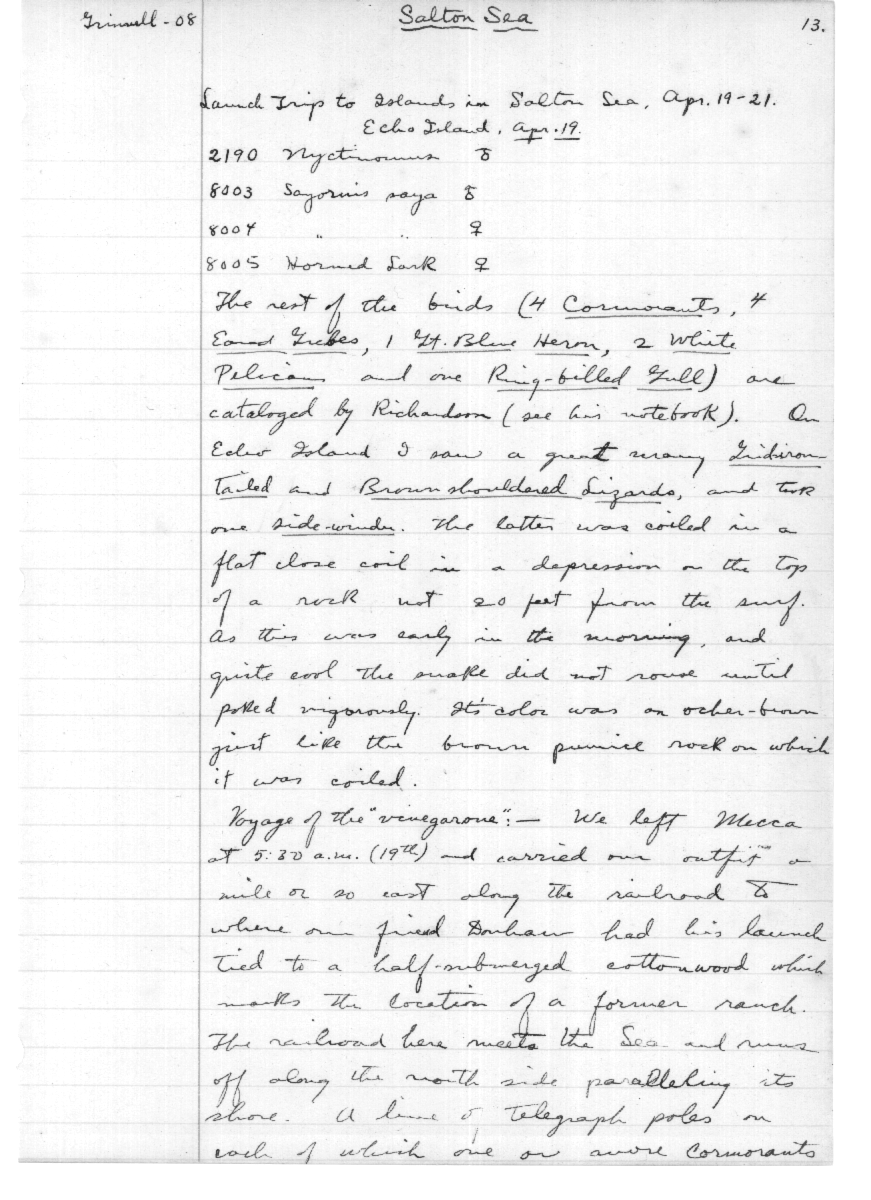 Grinnell - 08
Salton Sea
13.
Launch Trip to Islands in Salton Sea, Apr. 19-21.
Echo Island, Apr. 19.
2190 Nyctinomus ♂
8003 Sayornis saya ♂
8004 " " ♀
8005 Horned Lark ♀
The rest of the birds (4 Cormorants, 4
Eared Grebes, 1 Gt. Blue Heron, 2 White
Pelicans and one Ring-billed Gull) are
cataloged by Richardson (see his notebook). On
Echo Island I saw a great many Gridiron
tailed and Brown shouldered Lizards, and took
one side-winder. The latter was coiled in a
flat close coil in a depression on the top
of a rock not 20 feet from the surf.
As this was early in the morning, and
quite cool the snake did not rouse until
poked vigorously. It's color was an ocher-brown
just like the brown pumice rock on which
it was coiled.
Voyage of the "vinegarone":— We left Mecca
at 5:30 a.m. (19th) and carried our outfit a
mile or so east along the railroad to
where our friend Donhaw had his launch
tied to a half-submerged cottonwood which
marks the location of a former ranch.
The railroad here meets the Sea and runs
off along the north side paralleling its
shore. A line of telegraph poles on
each of which one or more Cormorants